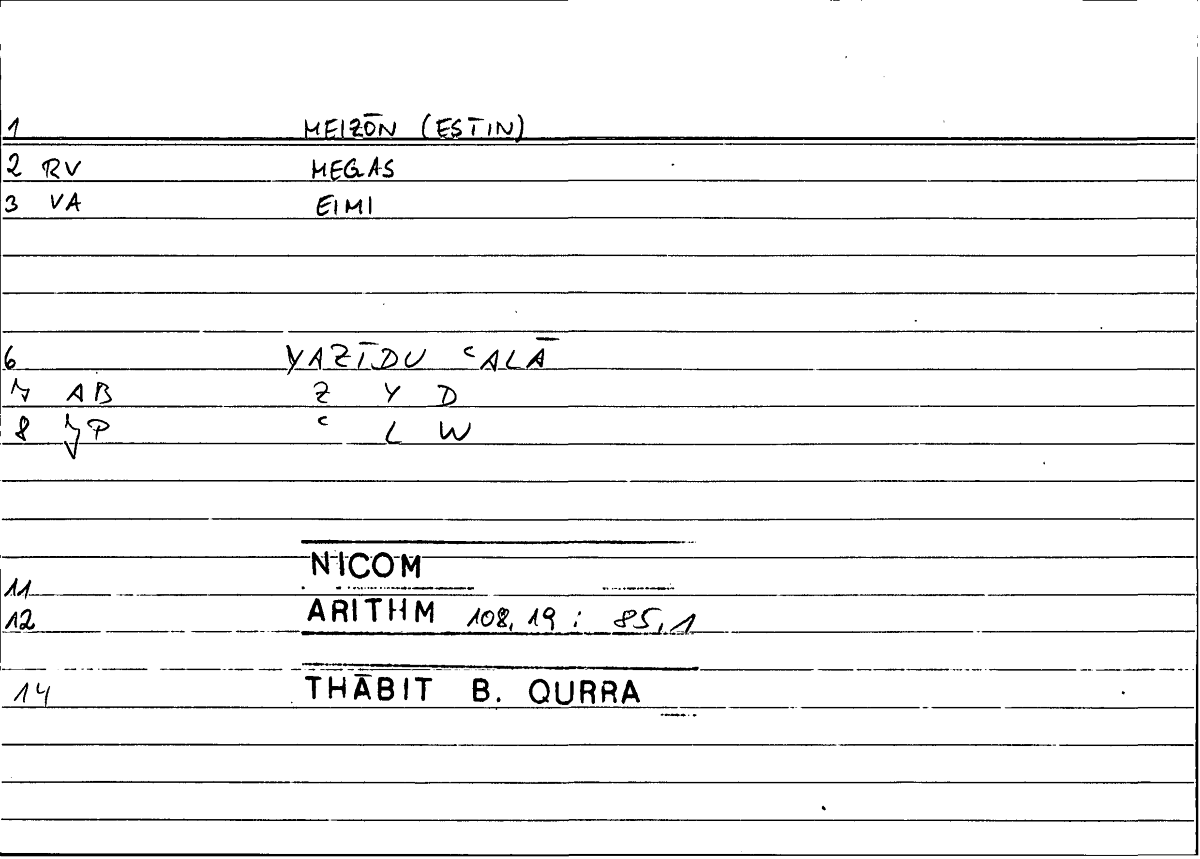 1 MEIZŌN (ESTIN)
2 RV MEGAS
3 VA EIMI
6 YAZĪDU ʿALĀ
7 AB Z Y D
8 JP ʿ L W
11 NICOM
12 ARITHM 108,19 : 85,1
14 THĀBIT B. QURRA